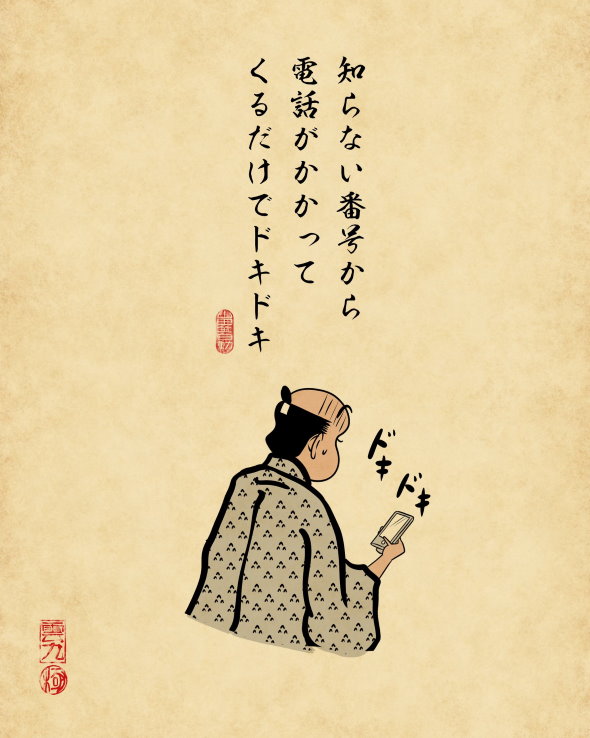 知らない番号から
電話がかかって
くるだけでドキドキ
ドキ
ドキ